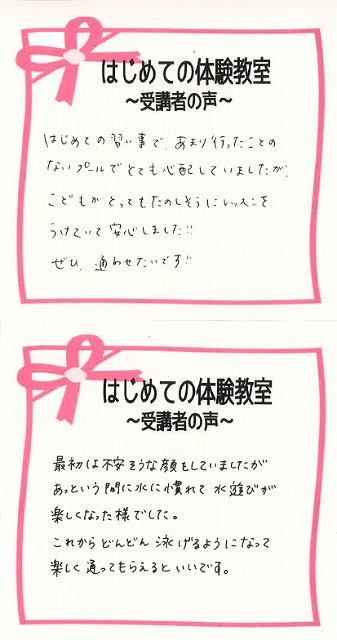 はじめての体験教室
～受講者の声～
はじめての習い事で、あまり行ったことの
ないプールでとても心配していましたが、
こどもがとってもたのしそうにレッスンを
うけていて安心しました!!
ぜひ、通わせたいです!!
はじめての体験教室
～受講者の声～
最初は不安そうな顔をしていましたが
あっという間に水に慣れて 水遊びが
楽しくなった様でした。
これからどんどん泳げるようになって
楽しく通ってもらえるといいです。